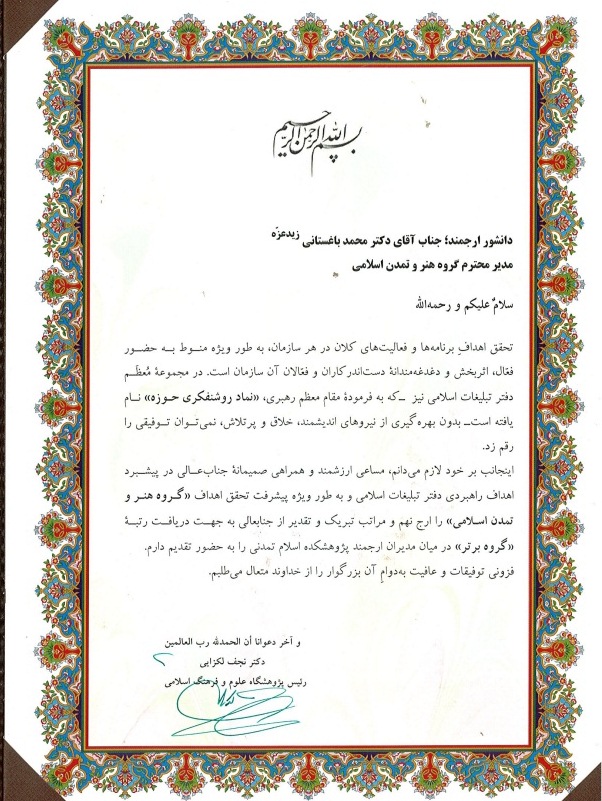 بسم الله الرحمن الرحیم
دانشور ارجمند؛ جناب آقای دکتر محمد باغستانی زیدعزّه
مدیر محترم گروه هنر و تمدن اسلامی
سلامٌ علیکم و رحمه‌الله
تحقق اهدافِ برنامه‌ها و فعالیت‌های کلان در هر سازمان، به طور ویژه منوط به حضور
فعّال، اثربخش و دغدغه‌مندانهٔ دست‌اندرکاران و فعّالان آن سازمان است. در مجموعهٔ مُعظَم
دفتر تبلیغات اسلامی نیز ـ‌که به فرمودهٔ مقام معظم رهبری، «نماد روشنفکری حوزه» نام
یافته است‌ـ بدون بهره‌گیری از نیروهای اندیشمند، خلاق و پرتلاش، نمی‌توان توفیقی را
رقم زد.
اینجانب بر خود لازم می‌دانم، مساعی ارزشمند و همراهی صمیمانهٔ جناب‌عالی در پیشبرد
اهداف راهبردی دفتر تبلیغات اسلامی و به طور ویژه پیشرفت تحقق اهداف «گروه هنر و
تمدن اسلامی» را ارج نهم و مراتب تبریک و تقدیر از جنابعالی به جهت دریافت رتبهٔ
«گروه برتر» در میان مدیران ارجمند پژوهشکده اسلام تمدنی را به حضور تقدیم دارم.
فزونی توفیقات و عافیت به‌دوامِ آن بزرگوار را از خداوند متعال می‌طلبم.
و آخر دعوانا أن الحمدلله رب العالمین
دکتر نجف لک‌زایی
رئیس پژوهشگاه علوم و فرهنگ اسلامی